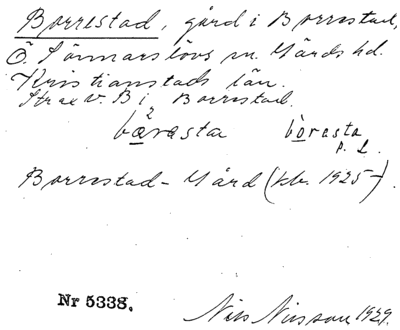 Borrestad, gård i Borrestad,
Ö. Sönnarslövs sn. Gärds hd.
Kristianstads län.
Strax v. B i Borrestad.
bòrasta
P. L.
Borrestad - Gård (kb. 1925-).
Nr 5338.
Nils Nilsson 1929.